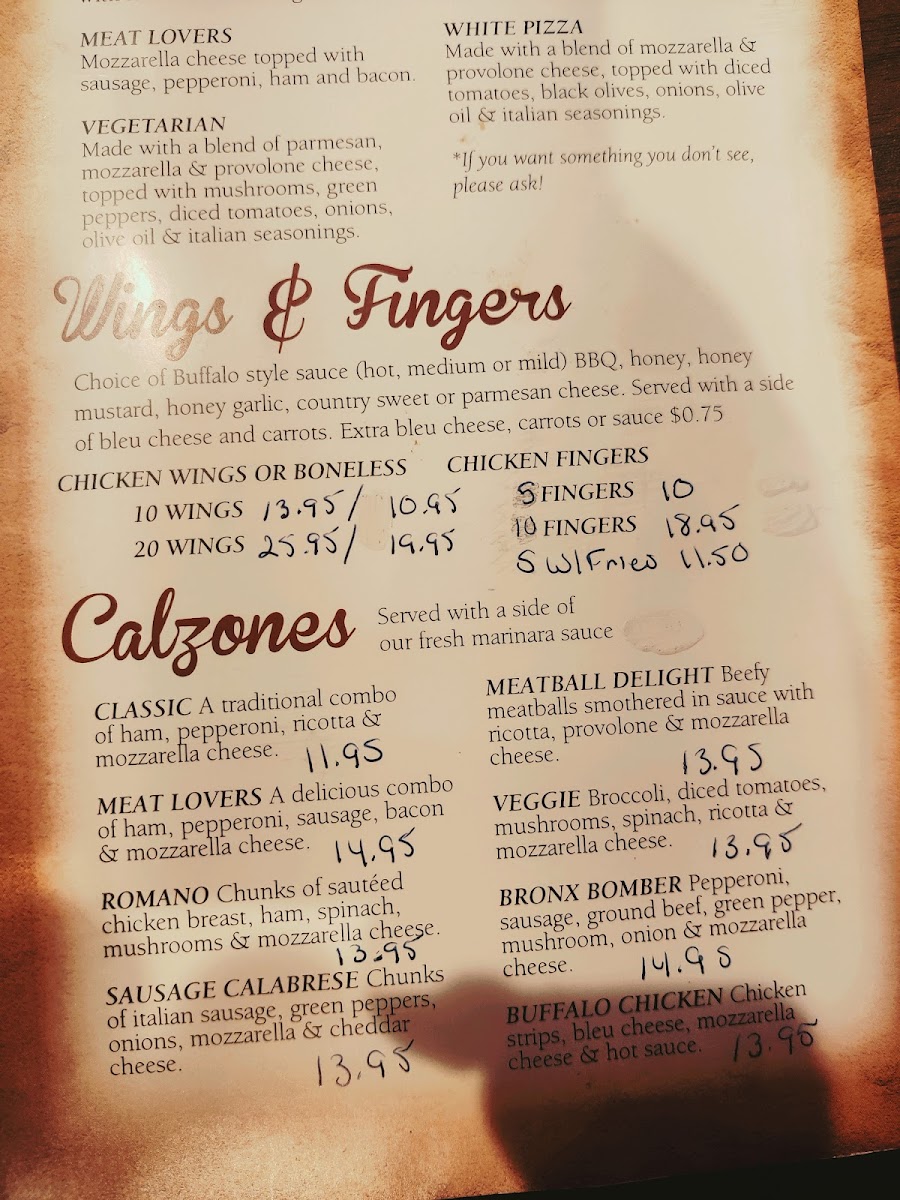 MEAT LOVERS
Mozzarella cheese topped with
sausage, pepperoni, ham and bacon.
VEGETARIAN
Made with a blend of parmesan,
mozzarella & provolone cheese,
topped with mushrooms, green
peppers, diced tomatoes, onions,
olive oil & italian seasonings.
WHITE PIZZA
Made with a blend of mozzarella &
provolone cheese, topped with diced
tomatoes, black olives, onions, olive
oil & italian seasonings.
*If you want something you don't see,
please ask!
Wings & Fingers
Choice of Buffalo style sauce (hot, medium or mild) BBQ, honey, honey
mustard, honey garlic, country sweet or parmesan cheese. Served with a side
of bleu cheese and carrots. Extra bleu cheese, carrots or sauce $0.75
CHICKEN WINGS OR BONELESS
10 WINGS 13.95/ 10.95
20 WINGS 25.95/ 19.95
CHICKEN FINGERS
5 FINGERS 10
10 FINGERS 18.95
5 W/Fries 11.50
Calzones
Served with a side of
our fresh marinara sauce
CLASSIC A traditional combo
of ham, pepperoni, ricotta &
mozzarella cheese. 11.95
MEAT LOVERS A delicious combo
of ham, pepperoni, sausage, bacon
& mozzarella cheese. 14.95
ROMANO Chunks of sautéed
chicken breast, ham, spinach,
mushrooms & mozzarella cheese.
13.95
SAUSAGE CALABRESE Chunks
of italian sausage, green peppers,
onions, mozzarella & cheddar
cheese. 13.95
MEATBALL DELIGHT Beefy
meatballs smothered in sauce with
ricotta, provolone & mozzarella
cheese. 13.95
VEGGIE Broccoli, diced tomatoes,
mushrooms, spinach, ricotta &
mozzarella cheese. 13.95
BRONX BOMBER Pepperoni,
sausage, ground beef, green pepper,
mushroom, onion & mozzarella
cheese. 14.95
BUFFALO CHICKEN Chicken
strips, bleu cheese, mozzarella
cheese & hot sauce. 13.95